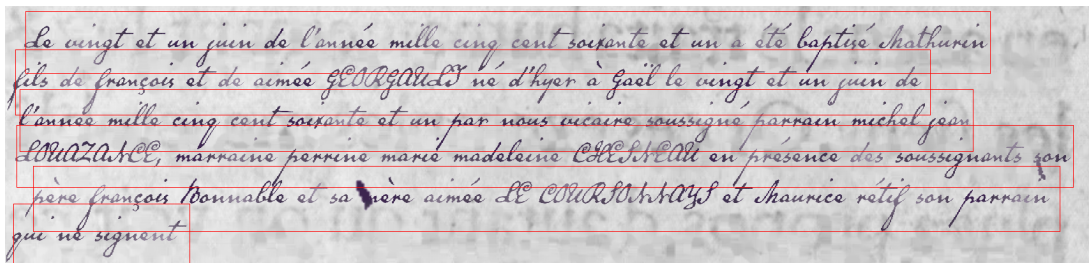 Le vingt et un juin de l'année mille cinq cent soixante et un a été baptisé Mathurin
fils de françois et de aimée GEORGAULT né d'hyer à Gaël le vingt et un juin de
l'année mille cinq cent soixante et un par nous vicaire soussigné parrain michel jean
LOUAZANCE, marraine perrine marie madeleine CHESNEAU en présence des soussignants son
père françois Bonnable et sa mère aimée LE COURSONNAYS et Maurice rétif son parrain
qui ne signent